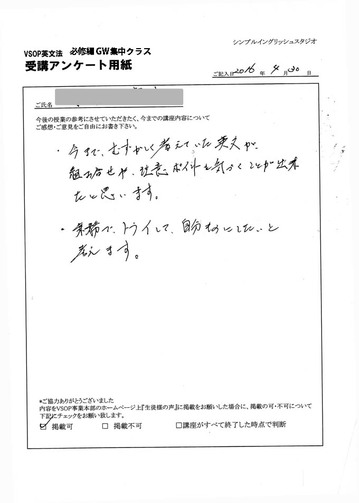 シンプルイングリッシュスタジオ
VSOP英文法 必修編GW集中クラス
受講アンケート用紙
ご記入日 2016 年 4 月 30 日
ご氏名
今後の授業の参考にさせていただきたく、今までの講座内容について
ご感想・ご意見をご自由にお書き下さい。
・今まで、むずかしく考えていた英文が、
組み合せや、注意ポイントを気づくことが出来
たと思います。
・業務で、トライして、自分ものにしたいと
考えます。
*ご協力ありがとうございました
内容をVSOP事業本部のホームページ上『生徒様の声』に掲載をお願いした場合に、掲載の可・不可について
下記にチェックをお願い致します。
☑ 掲載可 □ 掲載不可 □講座がすべて終了した時点で判断